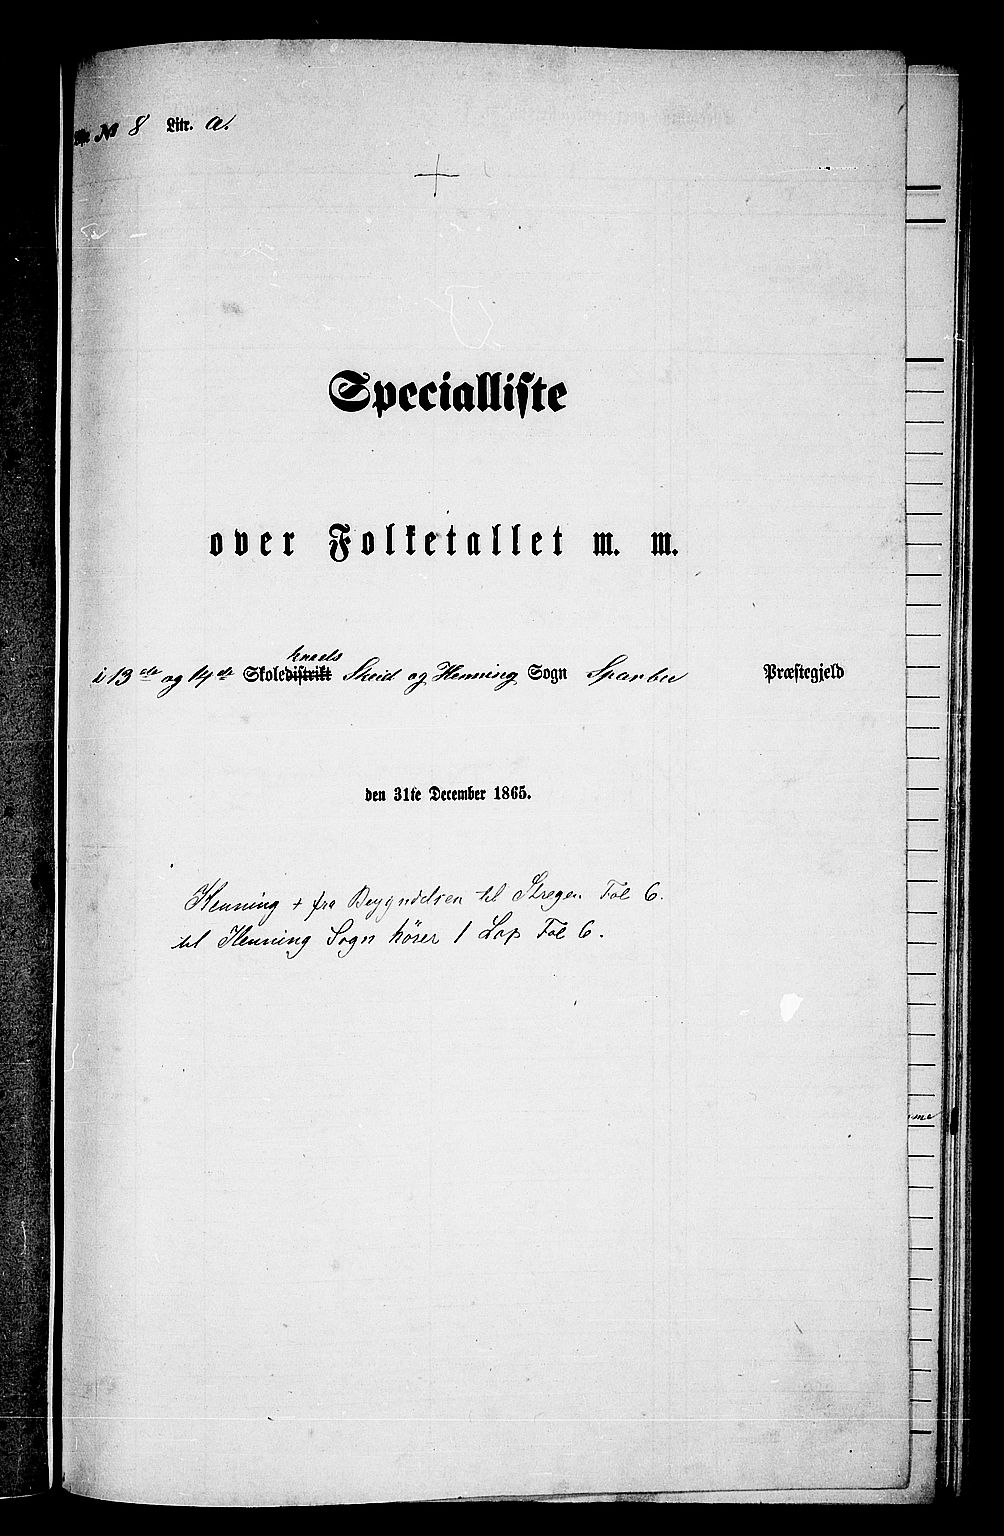 № 8 Litr. a.
Specialliste
over Folketallet m. m.
kreds
i 13de og 14de Skoledistrikt Skeid og Henning Sogn Sparbu Præstegjeld
den 31te December 1865.
Henning + fra Begyndelsen til Stregen Fol 6.
til Henning Sogn hörer 1 Fol 6.